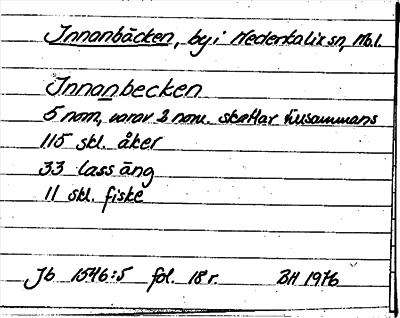 Innanbäcken, by i Nederkalix sn, Nb.l.
Innanbecken
5 nom, varav 2 nom. skattar tillsammans
115 skl. åker
33 lass äng
11 skl. fiske
Jb 1546:5 fol. 18 r. BH 1976